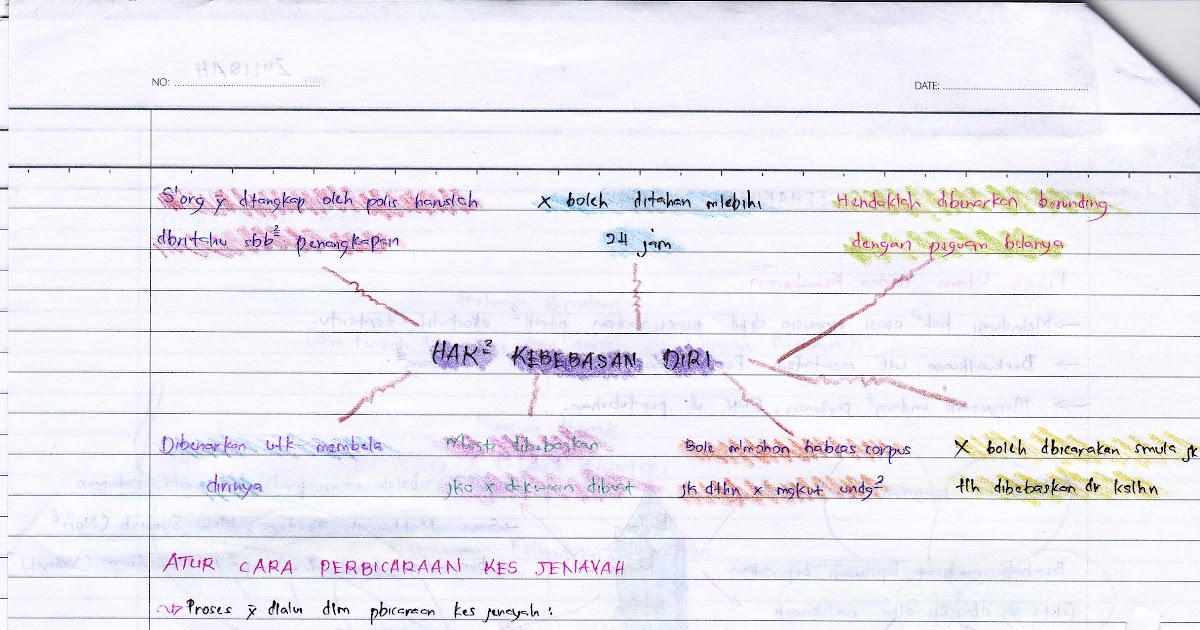 NO:
DATE:
S'org ỹ dtangkap oleh polis haruslah
dbritahu sbb² penangkapan
X boleh ditahan mlebihi
24 jam
Hendaklah dibenarkan berunding
dengan peguam belanya
HAK² KEBEBASAN DIRI
Dibenarkan utk membela
dirinya
Mesti dibebaskan
jka x dakwaan dibuat
Bole mmohon habeas corpus
jk dthn x mgkut undg²
X boleh dbicarakan smula jk
tlh dibebaskan dr kslhn
ATUR CARA PERBICARAAN KES JENAYAH
Proses ỹ dlalu dlm pbicaraan kes jenayah :